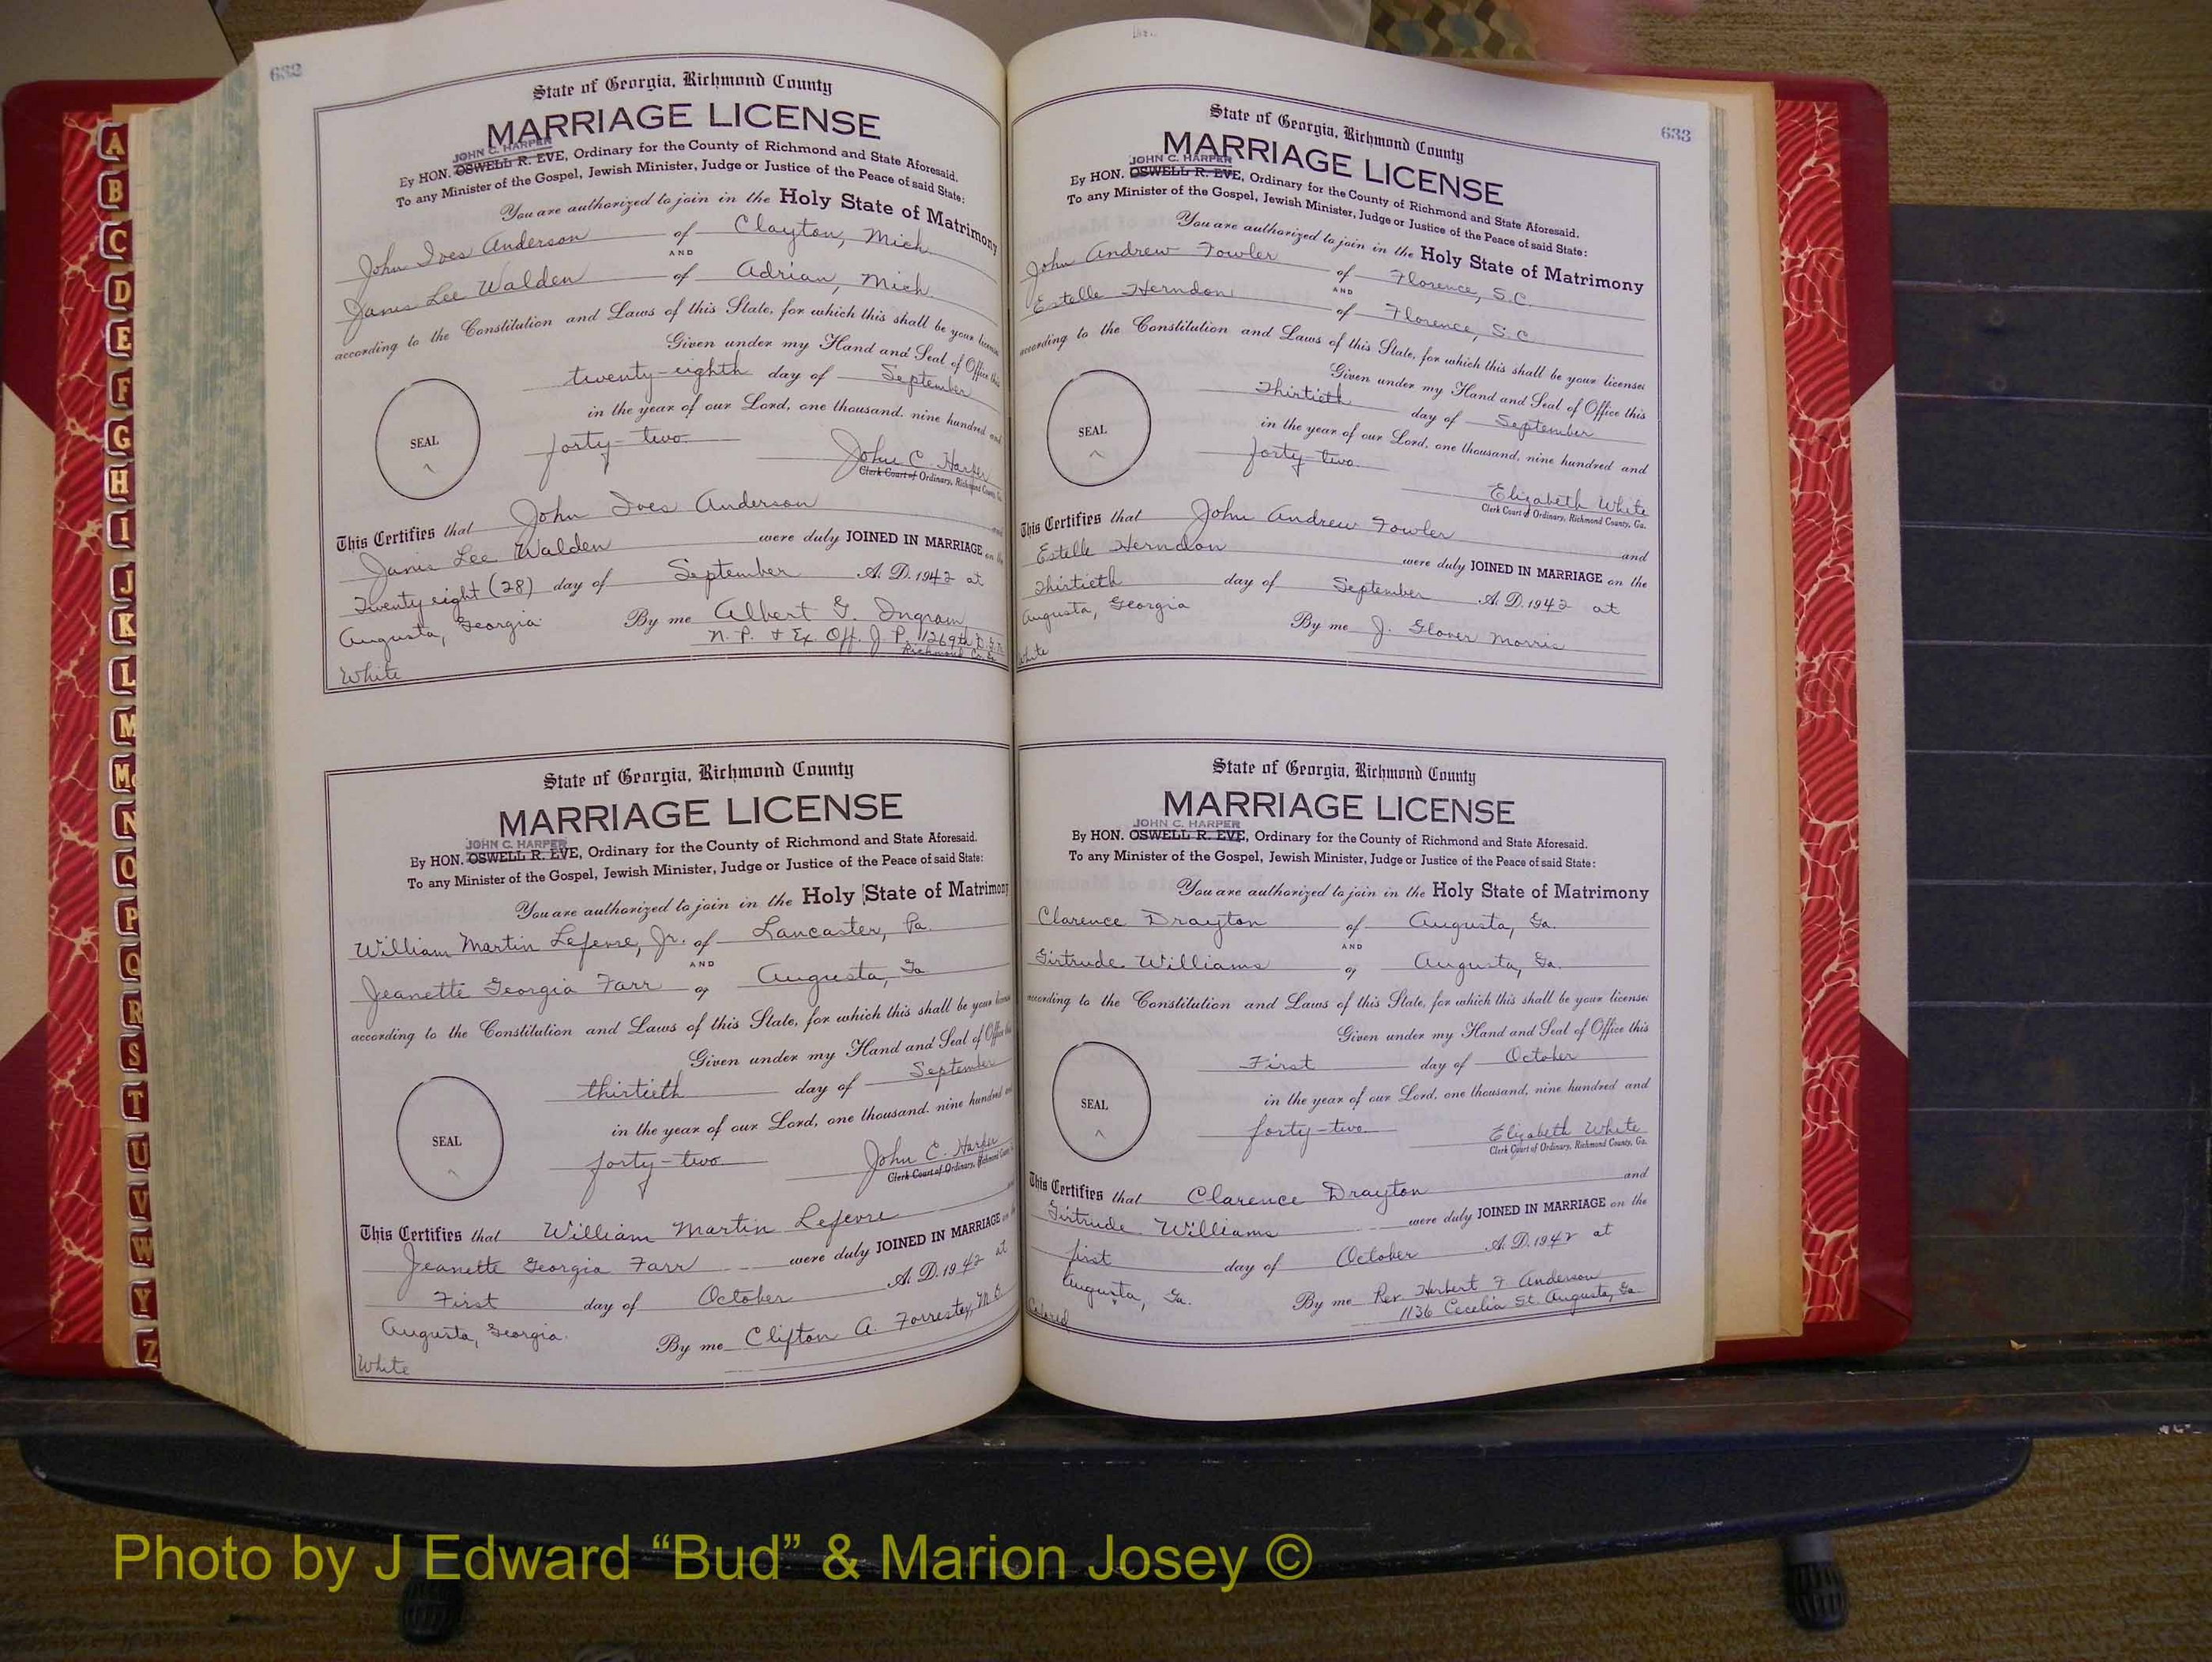 632
State of Georgia, Richmond County
MARRIAGE LICENSE
JOHN C. HARPER
By HON. OSWELL R. EVE, Ordinary for the County of Richmond and State Aforesaid.
To any Minister of the Gospel, Jewish Minister, Judge or Justice of the Peace of said State:
You are authorized to join in the Holy State of Matrimony
John Ives Anderson of Clayton, Mich.
AND
Janis Lee Walden of Adrian, Mich.
according to the Constitution and Laws of this State, for which this shall be your license
Given under my Hand and Seal of Office this
twenty-eighth day of September
in the year of our Lord, one thousand, nine hundred and
SEAL
forty-two
John C. Harper
Clerk Court of Ordinary, Richmond County, Ga.
This Certifies that John Ives Anderson and
Janis Lee Walden were duly JOINED IN MARRIAGE on the
Twenty eight (28) day of September A. D. 1942 at
Augusta, Georgia By me Albert G. Ingram
N. P. & Ex. Off. J. P. 1269th D. G. M.
Richmond Co. Ga
White
State of Georgia, Richmond County
MARRIAGE LICENSE
JOHN C. HARPER
By HON. OSWELL R. EVE, Ordinary for the County of Richmond and State Aforesaid.
To any Minister of the Gospel, Jewish Minister, Judge or Justice of the Peace of said State:
You are authorized to join in the Holy State of Matrimony
William Martin Lefevre, Jr. of Lancaster, Pa.
AND
Jeanette Georgia Farr of Augusta, Ga
according to the Constitution and Laws of this State, for which this shall be your license
Given under my Hand and Seal of Office this
thirtieth day of September
in the year of our Lord, one thousand, nine hundred and
SEAL
forty-two
John C. Harper
Clerk Court of Ordinary, Richmond County
This Certifies that William Martin Lefevre
Jeanette Georgia Farr were duly JOINED IN MARRIAGE on the
First day of October A. D. 1942 at
Augusta, Georgia. By me Clifton A. Forrester, M. G.
White
633
State of Georgia, Richmond County
MARRIAGE LICENSE
JOHN C. HARPER
By HON. OSWELL R. EVE, Ordinary for the County of Richmond and State Aforesaid.
To any Minister of the Gospel, Jewish Minister, Judge or Justice of the Peace of said State:
You are authorized to join in the Holy State of Matrimony
John Andrew Fowler of Florence, S.C.
AND
Estelle Herndon of Florence, S.C.
according to the Constitution and Laws of this State, for which this shall be your license
Given under my Hand and Seal of Office this
Thirtieth day of September
in the year of our Lord, one thousand, nine hundred and
SEAL
forty two
Elizabeth White
Clerk Court of Ordinary, Richmond County, Ga.
This Certifies that John Andrew Fowler and
Estelle Herndon were duly JOINED IN MARRIAGE on the
Thirtieth day of September A. D. 1942 at
Augusta, Georgia By me J. Glover Morris
White
State of Georgia, Richmond County
MARRIAGE LICENSE
JOHN C. HARPER
By HON. OSWELL R. EVE, Ordinary for the County of Richmond and State Aforesaid.
To any Minister of the Gospel, Jewish Minister, Judge or Justice of the Peace of said State:
You are authorized to join in the Holy State of Matrimony
Clarence Drayton of Augusta, Ga.
AND
Girtrude Williams of Augusta, Ga.
according to the Constitution and Laws of this State, for which this shall be your license
Given under my Hand and Seal of Office this
First day of October
in the year of our Lord, one thousand, nine hundred and
SEAL
forty-two
Elizabeth White
Clerk Court of Ordinary, Richmond County, Ga.
This Certifies that Clarence Drayton and
Girtrude Williams were duly JOINED IN MARRIAGE on the
first day of October A. D. 1942 at
Augusta, Ga. By me Rev. Herbert F Anderson
1136 Cecelia St. Augusta, Ga.
Colored
A
B
C
D
E
F
G
H
I
J
K
L
M
Mc
N
O
P
Q
R
S
T
U
V
W
Y
Z
Photo by J Edward “Bud” & Marion Josey ©